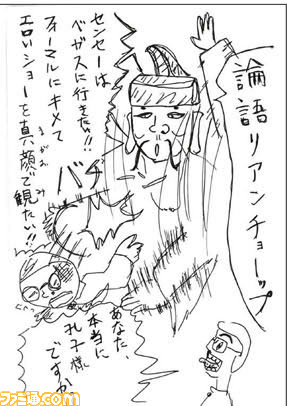 論語リアンチョーップ
センセーは
ベガスに行きたい!!
フォーマルにキメて
エロいショーを真顔で観たい!!
まがお
み
バチ
あなた、
本当に
孔子様
ですか
ファミ通.com